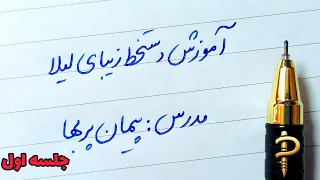 آموزش دستخط زیبای لیلا
مدرس : پیمان پربها
جلسه اول